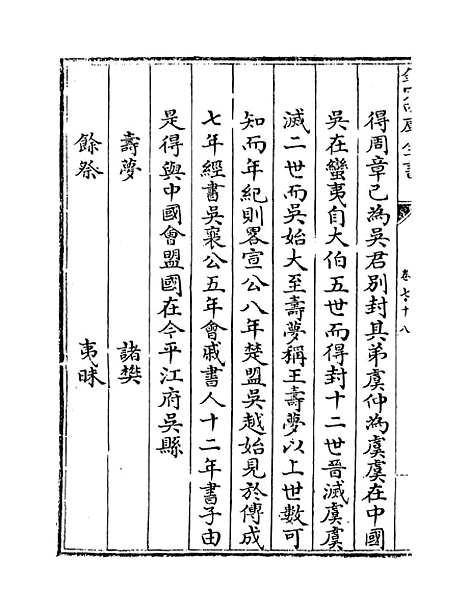 欽定四庫全書
卷七十八
得周章已為吳君別封其弟虞仲為虞虞在中國
吳在蠻夷自大伯五世而得封十二世晉滅虞虞
滅二世而吳始大至壽夢稱王壽夢以上世數可
知而年紀則畧宣公八年楚盟吳越始見於傳成
七年經書吳襄公五年會戚書人十二年書子由
是得與中國會盟國在今平江府吳縣
壽夢 諸樊
餘祭 夷昧